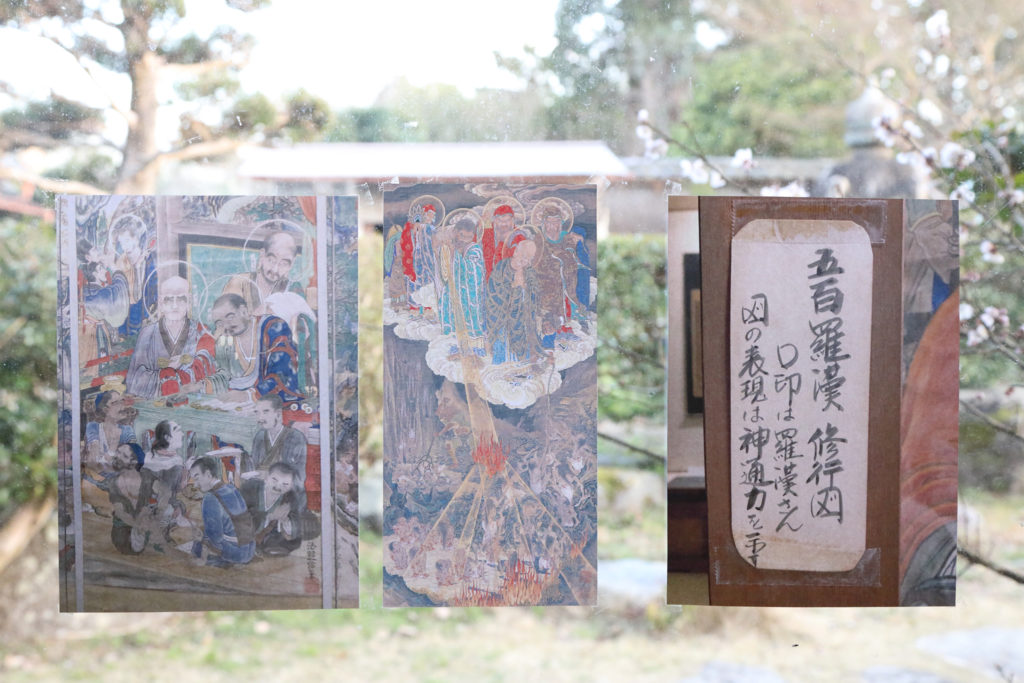 五百羅漢 修行図
〇印は羅漢さん
図の表現は神通力を示